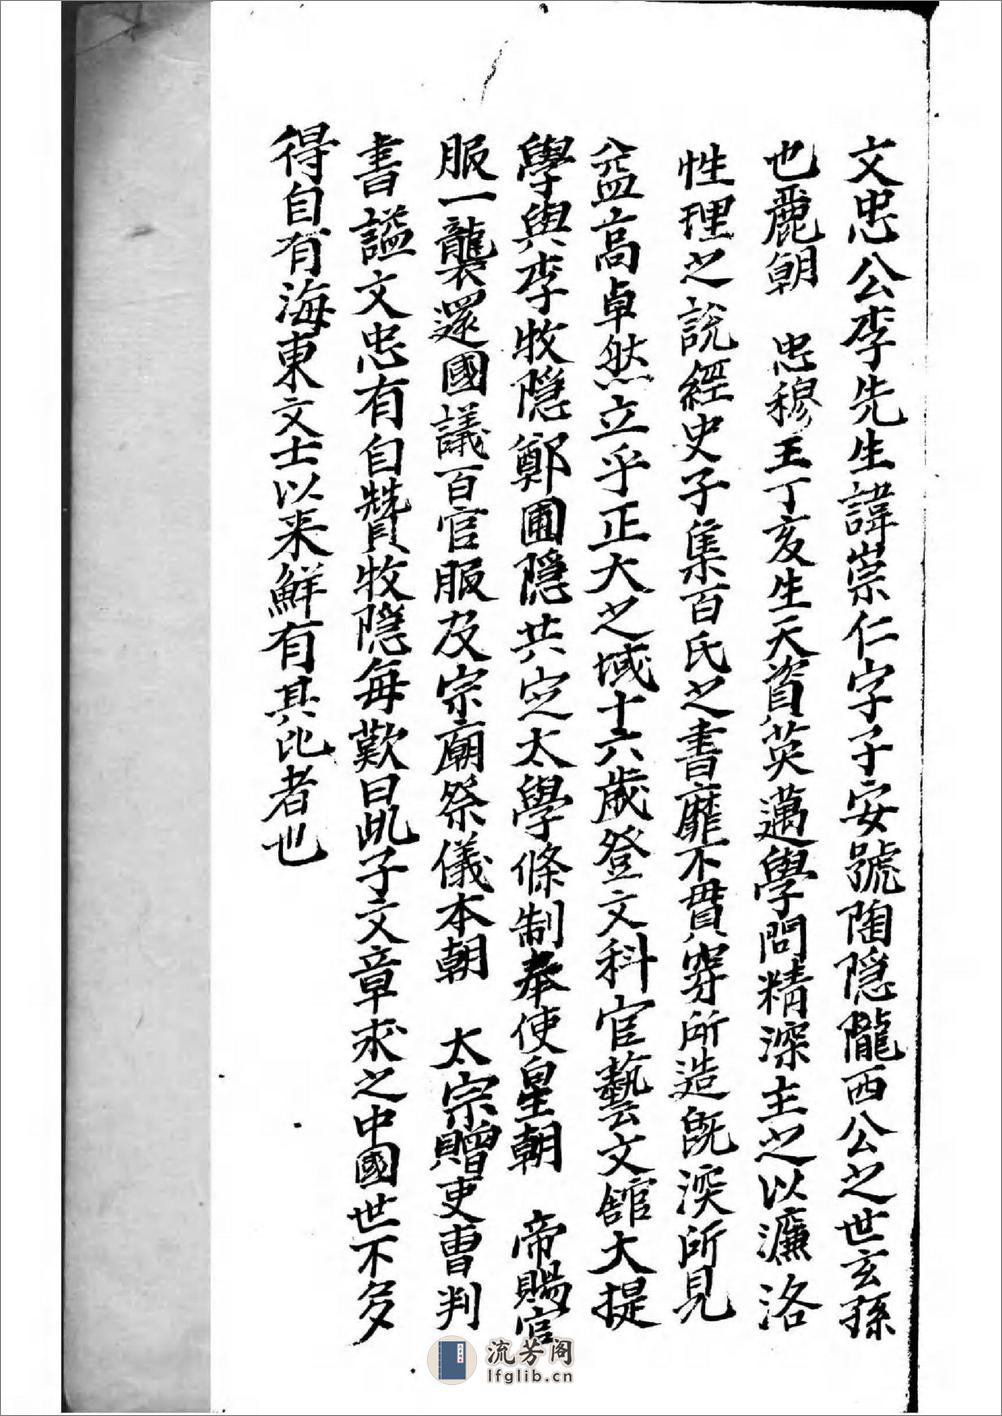 文忠公李先生諱崇仁字子安號陶隠隴西公之世玄孫
也麗朝　忠穆王丁亥生天資英邁學問精深主之以濂洛
性理之說經史子集百氏之書靡不貫穿所造旣深所見
益高卓然立乎正大之域十六歲登文科官藝文舘大提
學與李牧隠鄭圃隠共定太學條制奉使皇朝　帝賜官
服一襲還國議百官服及宗廟祭儀本朝　太宗贈吏曹判
書謚文忠有自贊牧隠每歎曰此子文章求之中國世不多
得自有海東文士以来鮮有其比者也
流芳阁
lfglib.cn